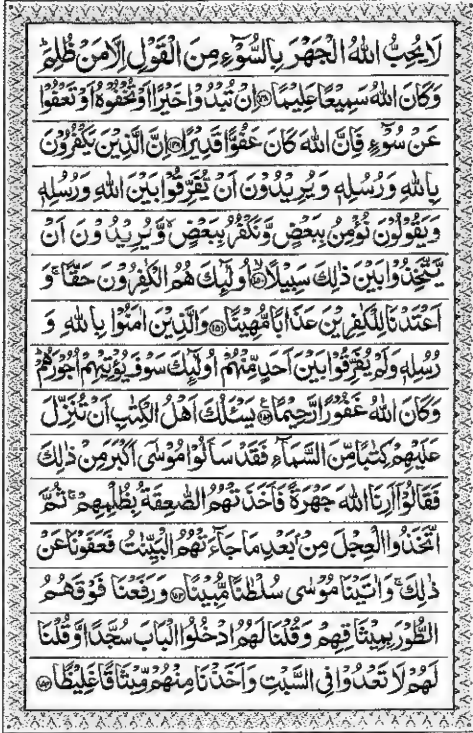 لَا يُحِبُّ اللهُ الْجَهْرَ بِالسُّوْٓءِ مِنَ الْقَوْلِ اِلَّا مَنْ ظُلِمَ ؕ
وَكَانَ اللهُ سَمِيْعًا عَلِيْمًا ﴿۱۴۸﴾ اِنْ تُبْدُوْا خَيْرًا اَوْ تُخْفُوْهُ اَوْ تَعْفُوْا
عَنْ سُوْٓءٍ فَاِنَّ اللهَ كَانَ عَفُوًّا قَدِيْرًا ﴿۱۴۹﴾ اِنَّ الَّذِيْنَ يَكْفُرُوْنَ
بِاللهِ وَرُسُلِهٖ وَيُرِيْدُوْنَ اَنْ يُّفَرِّقُوْا بَيْنَ اللهِ وَرُسُلِهٖ
وَيَقُوْلُوْنَ نُؤْمِنُ بِبَعْضٍ وَّنَكْفُرُ بِبَعْضٍ ۙ وَّيُرِيْدُوْنَ اَنْ
يَّتَّخِذُوْا بَيْنَ ذٰلِكَ سَبِيْلًا ﴿۱۵۰﴾ ۙ اُولٰٓئِكَ هُمُ الْكٰفِرُوْنَ حَقًّا ۚ وَ
اَعْتَدْنَا لِلْكٰفِرِيْنَ عَذَابًا مُّهِيْنًا ﴿۱۵۱﴾ وَالَّذِيْنَ اٰمَنُوْا بِاللهِ وَ
رُسُلِهٖ وَلَمْ يُفَرِّقُوْا بَيْنَ اَحَدٍ مِّنْهُمْ اُولٰٓئِكَ سَوْفَ يُؤْتِيْهِمْ اُجُوْرَهُمْ ؕ
وَكَانَ اللهُ غَفُوْرًا رَّحِيْمًا ﴿۱۵۲﴾ يَسْـَٔلُكَ اَهْلُ الْكِتٰبِ اَنْ تُنَزِّلَ
عَلَيْهِمْ كِتٰبًا مِّنَ السَّمَآءِ فَقَدْ سَاَلُوْا مُوْسٰٓى اَكْبَرَ مِنْ ذٰلِكَ
فَقَالُوْٓا اَرِنَا اللهَ جَهْرَةً فَاَخَذَتْهُمُ الصّٰعِقَةُ بِظُلْمِهِمْ ۚ ثُمَّ
اتَّخَذُوا الْعِجْلَ مِنْۢ بَعْدِ مَا جَآءَتْهُمُ الْبَيِّنٰتُ فَعَفَوْنَا عَنْ
ذٰلِكَ ۚ وَاٰتَيْنَا مُوْسٰى سُلْطٰنًا مُّبِيْنًا ﴿۱۵۳﴾ وَرَفَعْنَا فَوْقَهُمُ
الطُّوْرَ بِمِيْثَاقِهِمْ وَقُلْنَا لَهُمُ ادْخُلُوا الْبَابَ سُجَّدًا وَّقُلْنَا
لَهُمْ لَا تَعْدُوْا فِى السَّبْتِ وَاَخَذْنَا مِنْهُمْ مِّيْثَاقًا غَلِيْظًا ﴿۱۵۴﴾